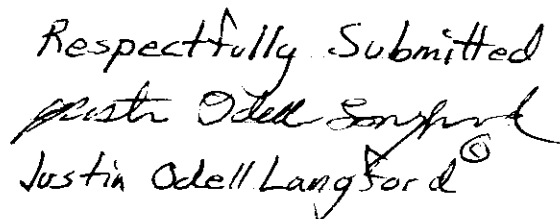 Respectfully Submitted
Justin Odell Langford
Justin Odell Langford ©